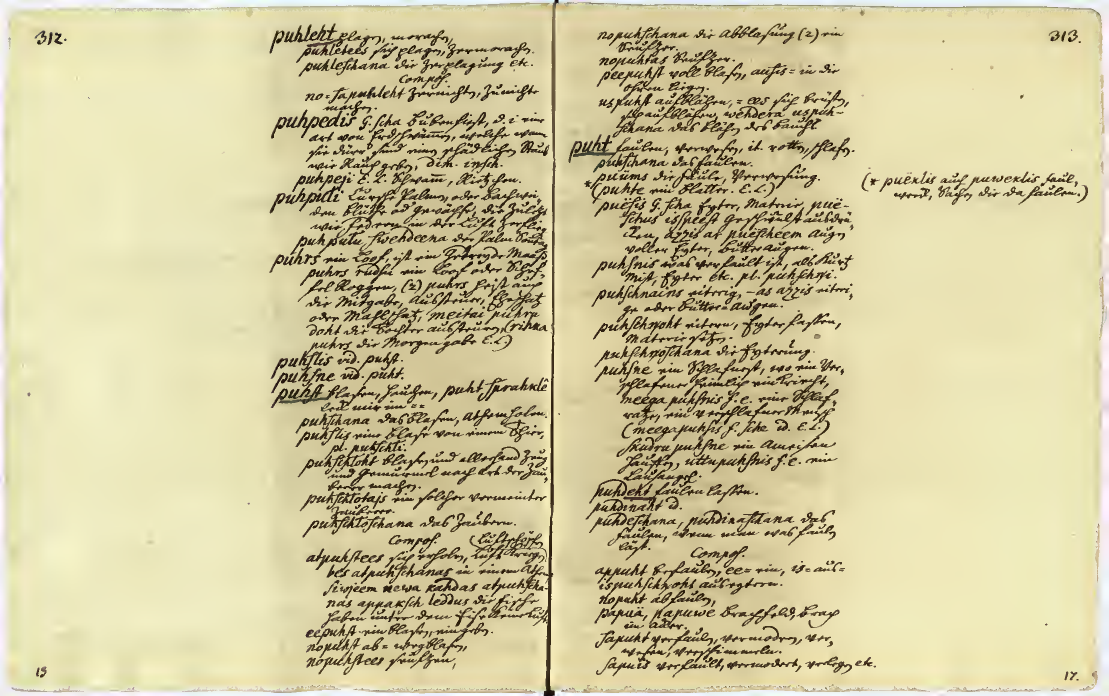 312.
puhleht plagen,
puhletees sich plagen,
puhleschana die Zerplagung etc.
Compos.
no-sapuhleht zernichten, zunichte
machen.
puhpedis G. scha Bubenfist, d. i. eine
art von Erdschwämmen, welche wenn
sie dürr sind einen Staub
wie Rauch geben, dim. insch.
puhpesi E. L. Schwam,
puhpuli Palmen, oder
den blüthe od gewächse, die
wie Federn in der Luft
puhpulu swehdeena der Palm Sontag
puhrs ein Loof, ist ein Getreyde Maaß
puhrs rudsu ein Loof oder Schef-
fel Roggen, (2) puhrs heist auch
die Mitgabe, Aussteuer,
oder Mahlschatz, meitai puhru
doht die Tochter aussteuern, (rihta
puhrs die Morgengabe E. L.)
puhslis vid. puhst.
puhsne vid. puht.
puhst blasen, hauchen, puht,
mir im
puhschana das blasen, Athem holen.
puhslis eine blase von einem Thier,
pl. puhschli.
puhschloht blasen und allerhand Zeug
und Gemurmel nach Art der Zau-
berer machen.
puhschlotajs ein solcher vermeinter
Zauberer.
puhschloschana das Zaubern.
Compos.
atpuhstees sich erholen, Luft
bes atpuhschanas in einem Athem
Siwjeem newa kahdas atpuhscha-
nas appaksch leddus die Fische
haben unter dem Eise keine Luft.
eepuhst einblasen, eingeben.
nopuhst ab= wegblasen,
nopuhstees seufzen,
13
313.
nopuhschana die Abblasung (2) ein
Seufzer.
nopuhtas Seufzer.
peepuhst voll blasen, auch in die
ohren liegen.
uspuhst aufblähen, = ees sich brüsten,
sich aufblähen, wehdera uspuh-
schana das blähen des bauchs
puht faulen, verwesen, it. rotten,
puhschana das faulen.
puüms die Fäule, Verwesung.
*(puhte ein blatter. E. L.)
(* puëxlis auch puwexlis faul,
werk, Sachen die da faulen.)
puësis G. scha Eyter, Materie, puë-
schus isspeest geschwulst ausdrü-
cken, azzis ar puëscheem Augen
voller Eyter, butteraugen.
puhsnis was verfault ist, als Kurtz
Mist, Eyter etc. pl. puhschņi.
puhschnains eiterig, -as azzis eiteri-
ge oder butter=augen.
puhschņoht eitern, Eyter fassen,
Materie setzen.
puhschņoschana die Eyterung.
puhsne ein Schlafnest, wo ein Ver-
schlafener heimlich einkriecht,
meega puhsnis f. e. eine Schlaf-
ratze, ein verschlafner Mensch
(meegapuhsis f. scke id. E. L.)
skudru puhsne ein Ameisen
Hauffen, uttupuhsnis f. e. ein
puhdeht faulen lassen.
puhdinaht id.
puhdeschana, puhdinaschana das
faulen, wenn man was faulen
läst.
Compos.
appuht befaulen, ee= ein, is= aus=
ispuhschņoht auseytern.
nopuht abfaulen,
papuä, papuwe brachfeld, brach
im Acker.
sapuht verfaulen, vermodern, ver-
wesen, verschimmeln.
sapuis verfault, vermodert, verlegen etc.
17.